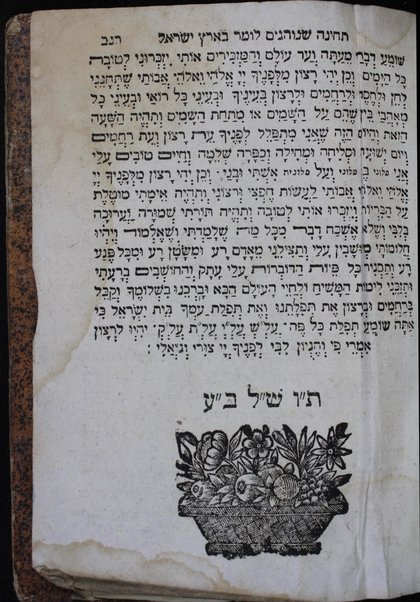 תחינה שנוהגים לומר בארץ ישראל רנב
שׁוֹמֵעַ דְּבָרַי מֵעַתָּה וְעַד עוֹלָם וְהַמַּזְכִּירִים אוֹתִי יִזְכְּרוּנִי לְטוֹבָה
כָּל הַיָּמִים וְכֵן יְהִי רָצוֹן מִלְּפָנֶיךָ יְיָ אֱלֹהַי וֵאלֹהֵי אֲבוֹתַי שֶׁתְּחָנֵּנִי
לְחֵן וּלְחֶסֶד וּלְרַחֲמִים וּלְרָצוֹן בְּעֵינֶיךָ וּבְעֵינֵי כָּל רוֹאַי וּבְעֵינֵי כָּל
מְאַהֲבַי בֵּין שֶׁהֵם עַל הַשָּׁמַיִם אוֹ מִתַּחַת הַשָּׁמַיִם וּתְהֵיָה הַשָּׁעָה
הַזֹּאת וְהַיּוֹם הַזֶּה שֶׁאֲנִי מִתְפַּלֵּל לְפָנֶיךָ עֵת רָצוֹן וְעֵת רַחֲמִים
וְיוֹם יְשׁוּעָה וּסְלִיחָה וּמְחִילָה וְכַפָּרָה שְׁלֵמָה וְחַיִּים טוֹבִים עָלַי
אֲנִי פלוני וְעַל פלונית אִשְׁתִּי וּבָנַי וְכֵן יְהִי רָצוֹן מִלְּפָנֶיךָ יְיָ
אֱלֹהַי וֵאלֹהֵי אֲבוֹתַי לַעֲשׂוֹת חֶפְצִי וּרְצוֹנִי וּתְהֵיָה אֵימָתִי מוּטֶלֶת
עַל הַבְּרִיּוֹת וְיִזְכְּרוּ אוֹתִי לְטוֹבָה וּתְהֵיָה תּוֹרָתִי שְׁמוּרָה וַעֲרוּכָה
בְּלִבִּי וְשֶׁלֹּא אֶשְׁכַּח דָּבָר מִכָּל מַה שֶּׁלָּמַדְתִּי וְשֶׁאֶלְמוֹד וְיִהְיוּ
חֲלוֹמוֹתַי מְיֻשָּׁבִין עָלַי וְתַצִּילֵנִי מֵאָדָם רָע וּמִשָּׂטָן רָע וּמִכָּל פֶּגַע
רָע וְתַכְנִיעַ כָּל פִּיּוֹת הַדּוֹבְרוֹת עָלַי עָתָק וְהַחוֹשְׁבִים בְּרָעָתִי
וּתְזַכֵּנִי לִימוֹת הַמָּשִׁיחַ וּלְחַיֵּי הָעוֹלָם הַבָּא וּבָרְכֵנוּ בִּשְׁלוֹמֶךָ וְקַבֵּל
בְּרַחֲמִים וּבְרָצוֹן אֶת תְּפִלָּתֵנוּ וְאֶת תְּפִלַּת עַמְּךָ בֵּית יִשְׂרָאֵל כִּי
אַתָּה שׁוֹמֵעַ תְּפִלַּת כָּל פֶּה יִהְיוּ לְרָצוֹן
אִמְרֵי פִי וְהֶגְיוֹן לִבִּי לְפָנֶיךָ יְיָ צוּרִי וְגוֹאֲלִי :
ת"ו ש"ל ב"ע